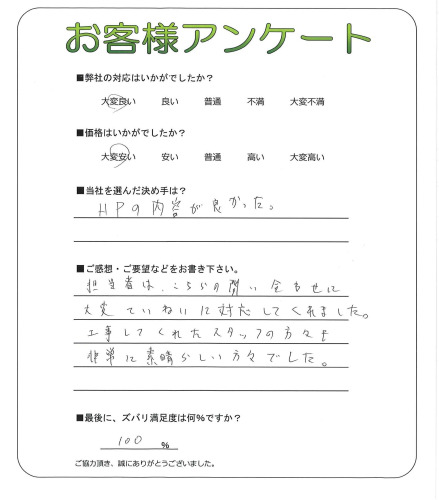 お客様アンケート
■弊社の対応はいかがでしたか?
大変良い 良い 普通 不満 大変不満
■価格はいかがでしたか?
大変安い 安い 普通 高い 大変高い
■当社を選んだ決め手は?
HPの内容が良かった。
■ご感想・ご要望などをお書き下さい。
担当者は、こちらの問い合わせに
大変ていねいに対応してくれました。
工事してくれたスタッフの方々も
非常に素晴らしい方々でした。
■最後に、ズバリ満足度は何%ですか?
100 %
ご協力頂き、誠にありがとうございました。